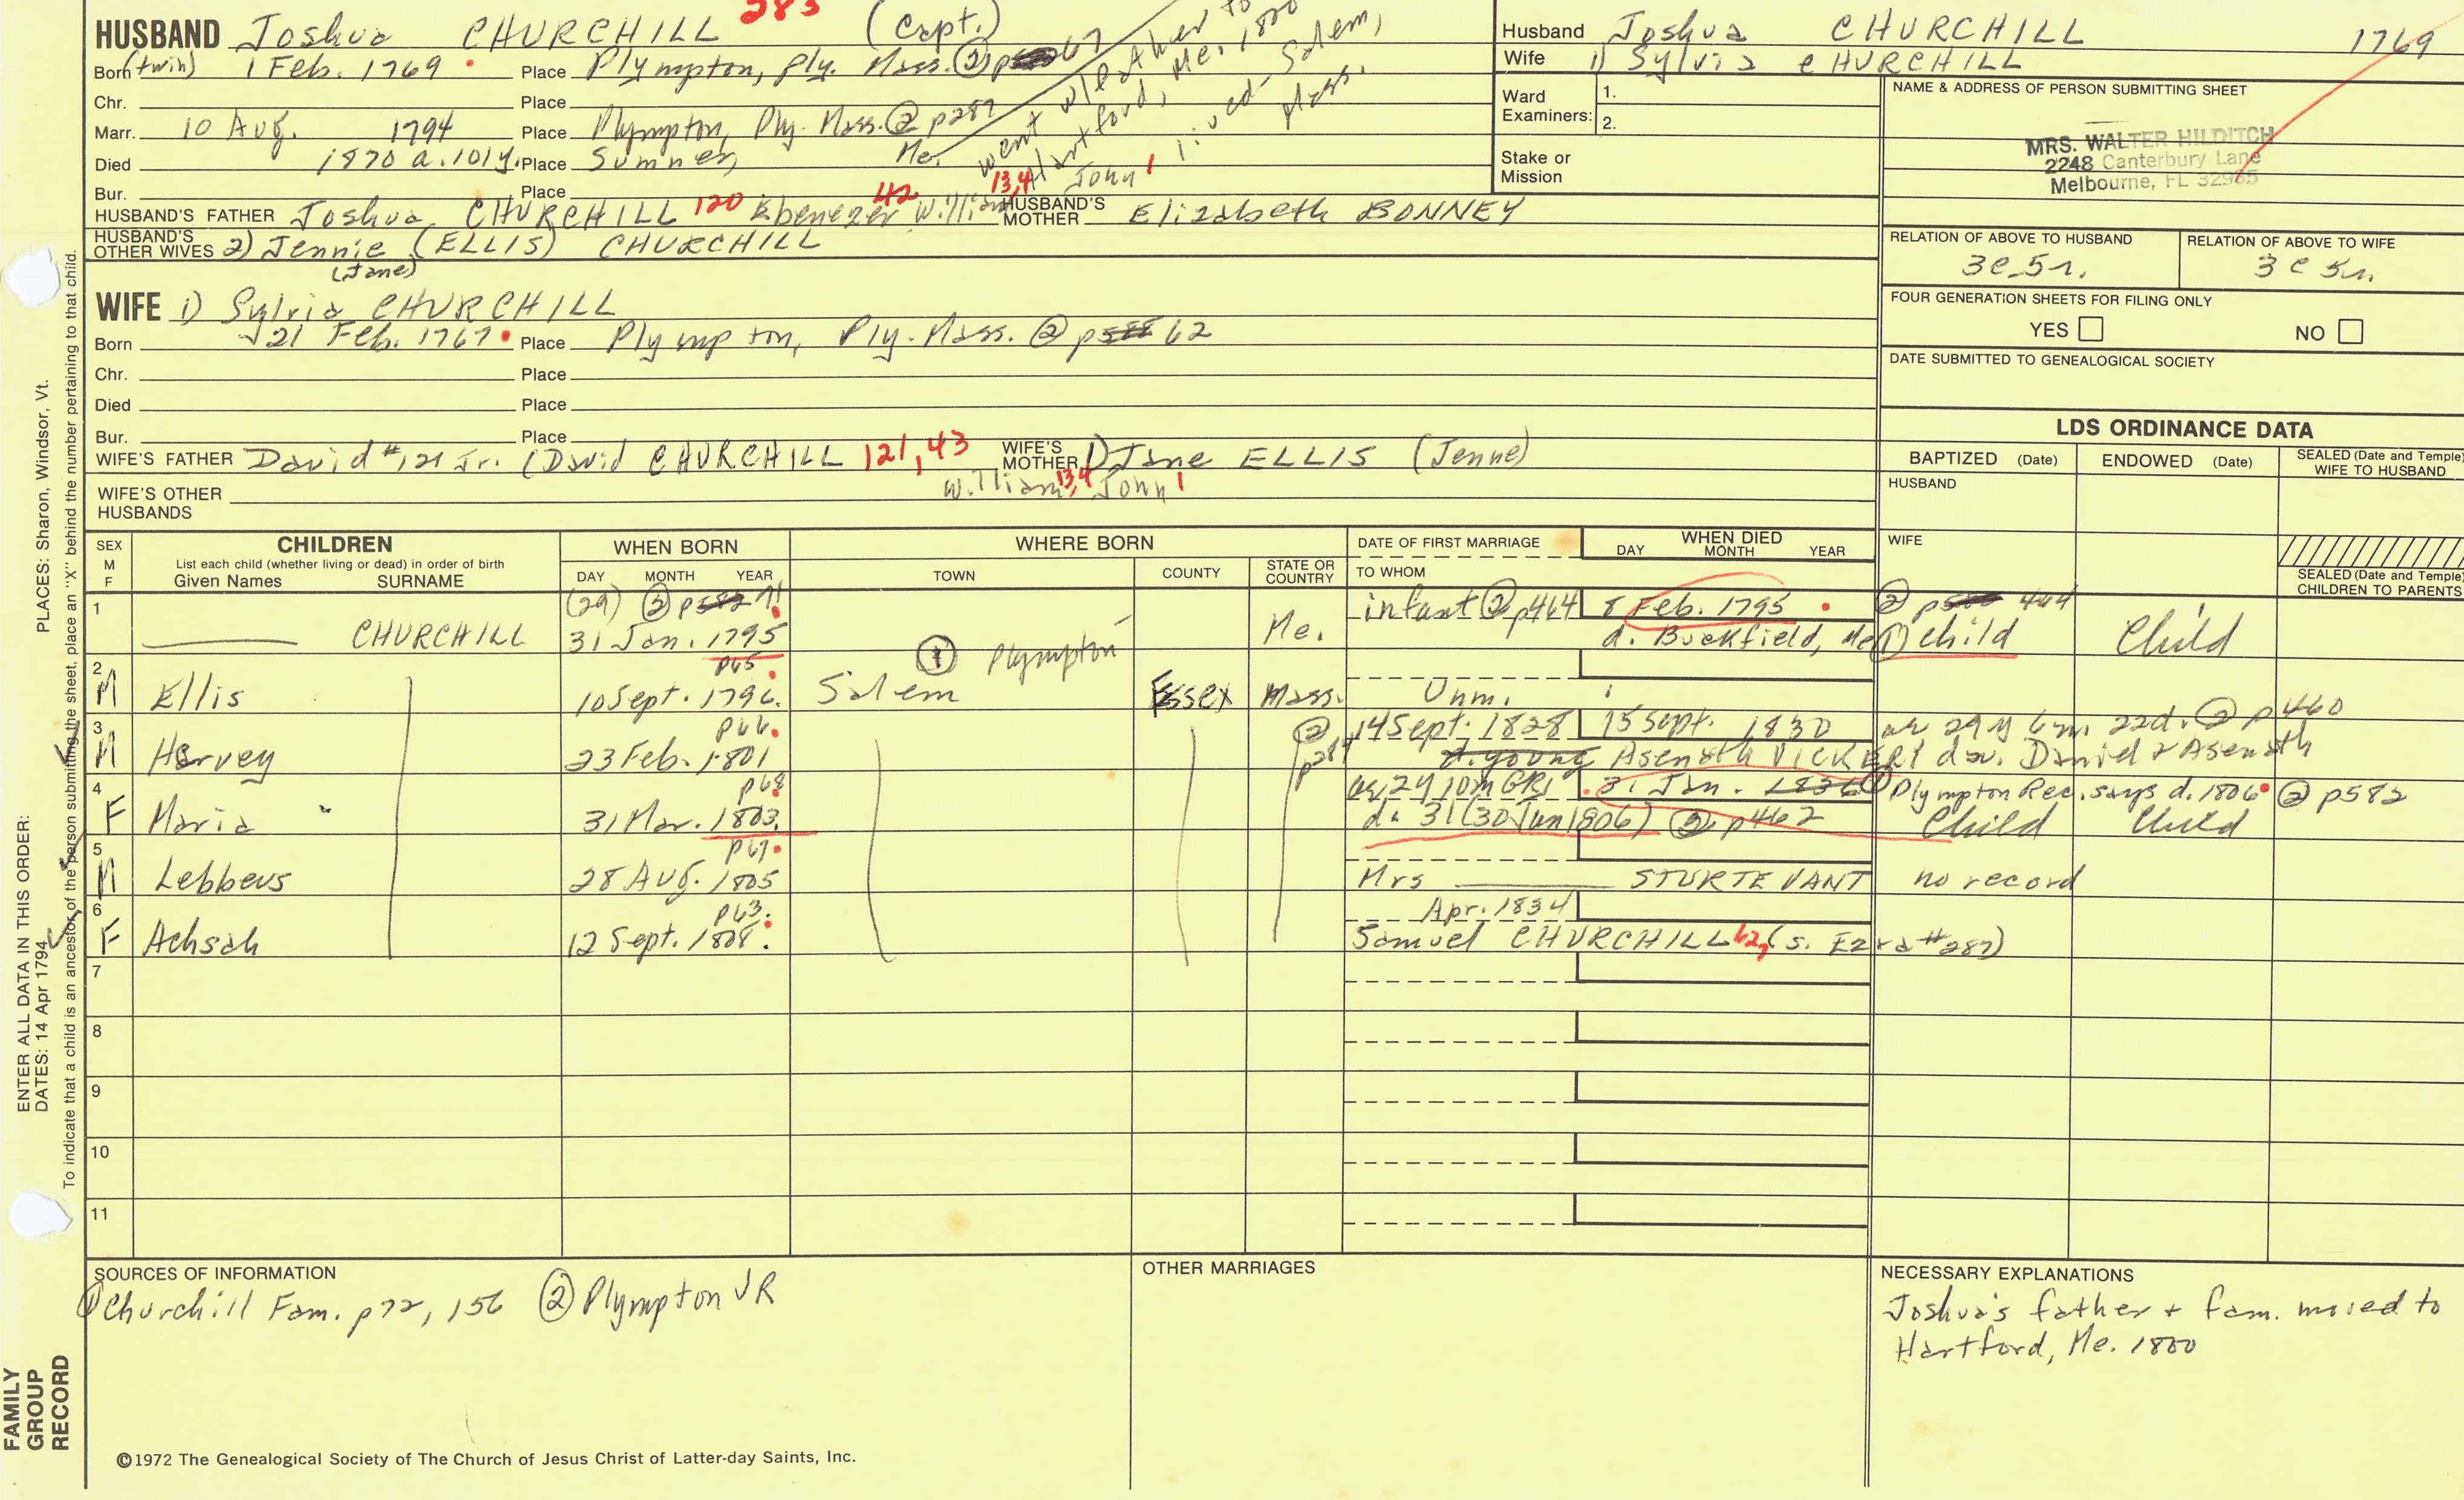 283
HUSBAND Joshua CHURCHILL (Capt.)
Born (twin) 1 Feb. 1769 Place Plympton, Ply. Mass. ② p 67
Chr. Place
Marr. 10 Aug. 1794 Place Plympton, Ply. Mass. ② p287
Died 1870 a. 101y. Place Sumner, Me.
Bur. Place
went w/father to
Hartford, Me. 1800
lived Salem,
Mass.
HUSBAND'S FATHER Joshua CHURCHILL 120 Ebenezer 42 William 13,4 John 1 HUSBAND'S MOTHER Elizabeth BONNEY
HUSBAND'S OTHER WIVES 2) Jennie (ELLIS) CHURCHILL
(Jane)
WIFE 1) Sylvia CHURCHILL
Born 21 Feb. 1767 Place Plympton, Ply. Mass. ② p 62
Chr. Place
Died Place
Bur. Place
WIFE'S FATHER David #121 Jr. (David CHURCHILL 121,43 WIFE'S MOTHER 1) Jane ELLIS (Jenne)
William 13,4 John 1
WIFE'S OTHER HUSBANDS
Husband Joshua CHURCHILL 1769
Wife 1) Sylvia CHURCHILL
Ward Examiners: 1.
2.
Stake or Mission
NAME & ADDRESS OF PERSON SUBMITTING SHEET
MRS. WALTER HILDITCH
2248 Canterbury Lane
Melbourne, FL 32935
RELATION OF ABOVE TO HUSBAND RELATION OF ABOVE TO WIFE
3c 5r. 3c 5r.
FOUR GENERATION SHEETS FOR FILING ONLY
YES NO
DATE SUBMITTED TO GENEALOGICAL SOCIETY
LDS ORDINANCE DATA
BAPTIZED (Date) ENDOWED (Date) SEALED (Date and Temple) WIFE TO HUSBAND
HUSBAND
WIFE
SEALED (Date and Temple) CHILDREN TO PARENTS
SEX M F CHILDREN WHEN BORN WHERE BORN DATE OF FIRST MARRIAGE WHEN DIED
List each child (whether living or dead) in order of birth
Given Names SURNAME DAY MONTH YEAR TOWN COUNTY STATE OR COUNTRY TO WHOM DAY MONTH YEAR
1 (29) ② p582 71 infant ② p464 8 Feb. 1795 ② p 464
CHURCHILL 31 Jan. 1795 Me. d. Buckfield, Me ① child Child
① Plympton
2 p65
M Ellis 10 Sept. 1796. Salem Essex Mass. Unm.
3 p66 ② p289 14 Sept. 1828 15 Sept. 1830 ae 29y 6m 22d. ② p460
M Harvey 23 Feb. 1801 A. young Asenath VICKERY dau. Daniel & Asenath
4 p68 ae 2y 10m GR1 31 Jan. 1836 ① Plympton Rec. says d. 1806 ② p582
F Maria 31 Mar. 1803. d. 31 (30 Jan 1806) ② p462 Child Child
5 p67
M Lebbeus 28 Aug. 1805 Mrs STURTEVANT no record
6 p63 Apr. 1834
F Achsah 12 Sept. 1808. Samuel CHURCHILL (s. Ezra #287)
7
8
9
10
11
SOURCES OF INFORMATION
① Churchill Fam. p72, 156 ② Plympton VR
OTHER MARRIAGES
NECESSARY EXPLANATIONS
Joshua's father + fam. moved to
Hartford, Me. 1800
©1972 The Genealogical Society of The Church of Jesus Christ of Latter-day Saints, Inc.
FAMILY
GROUP
RECORD
ENTER ALL DATA IN THIS ORDER:
DATES: 14 Apr 1794
PLACES: Sharon, Windsor, Vt.
To indicate that a child is an ancestor of the person submitting the sheet, place an "X" behind the number pertaining to that child.